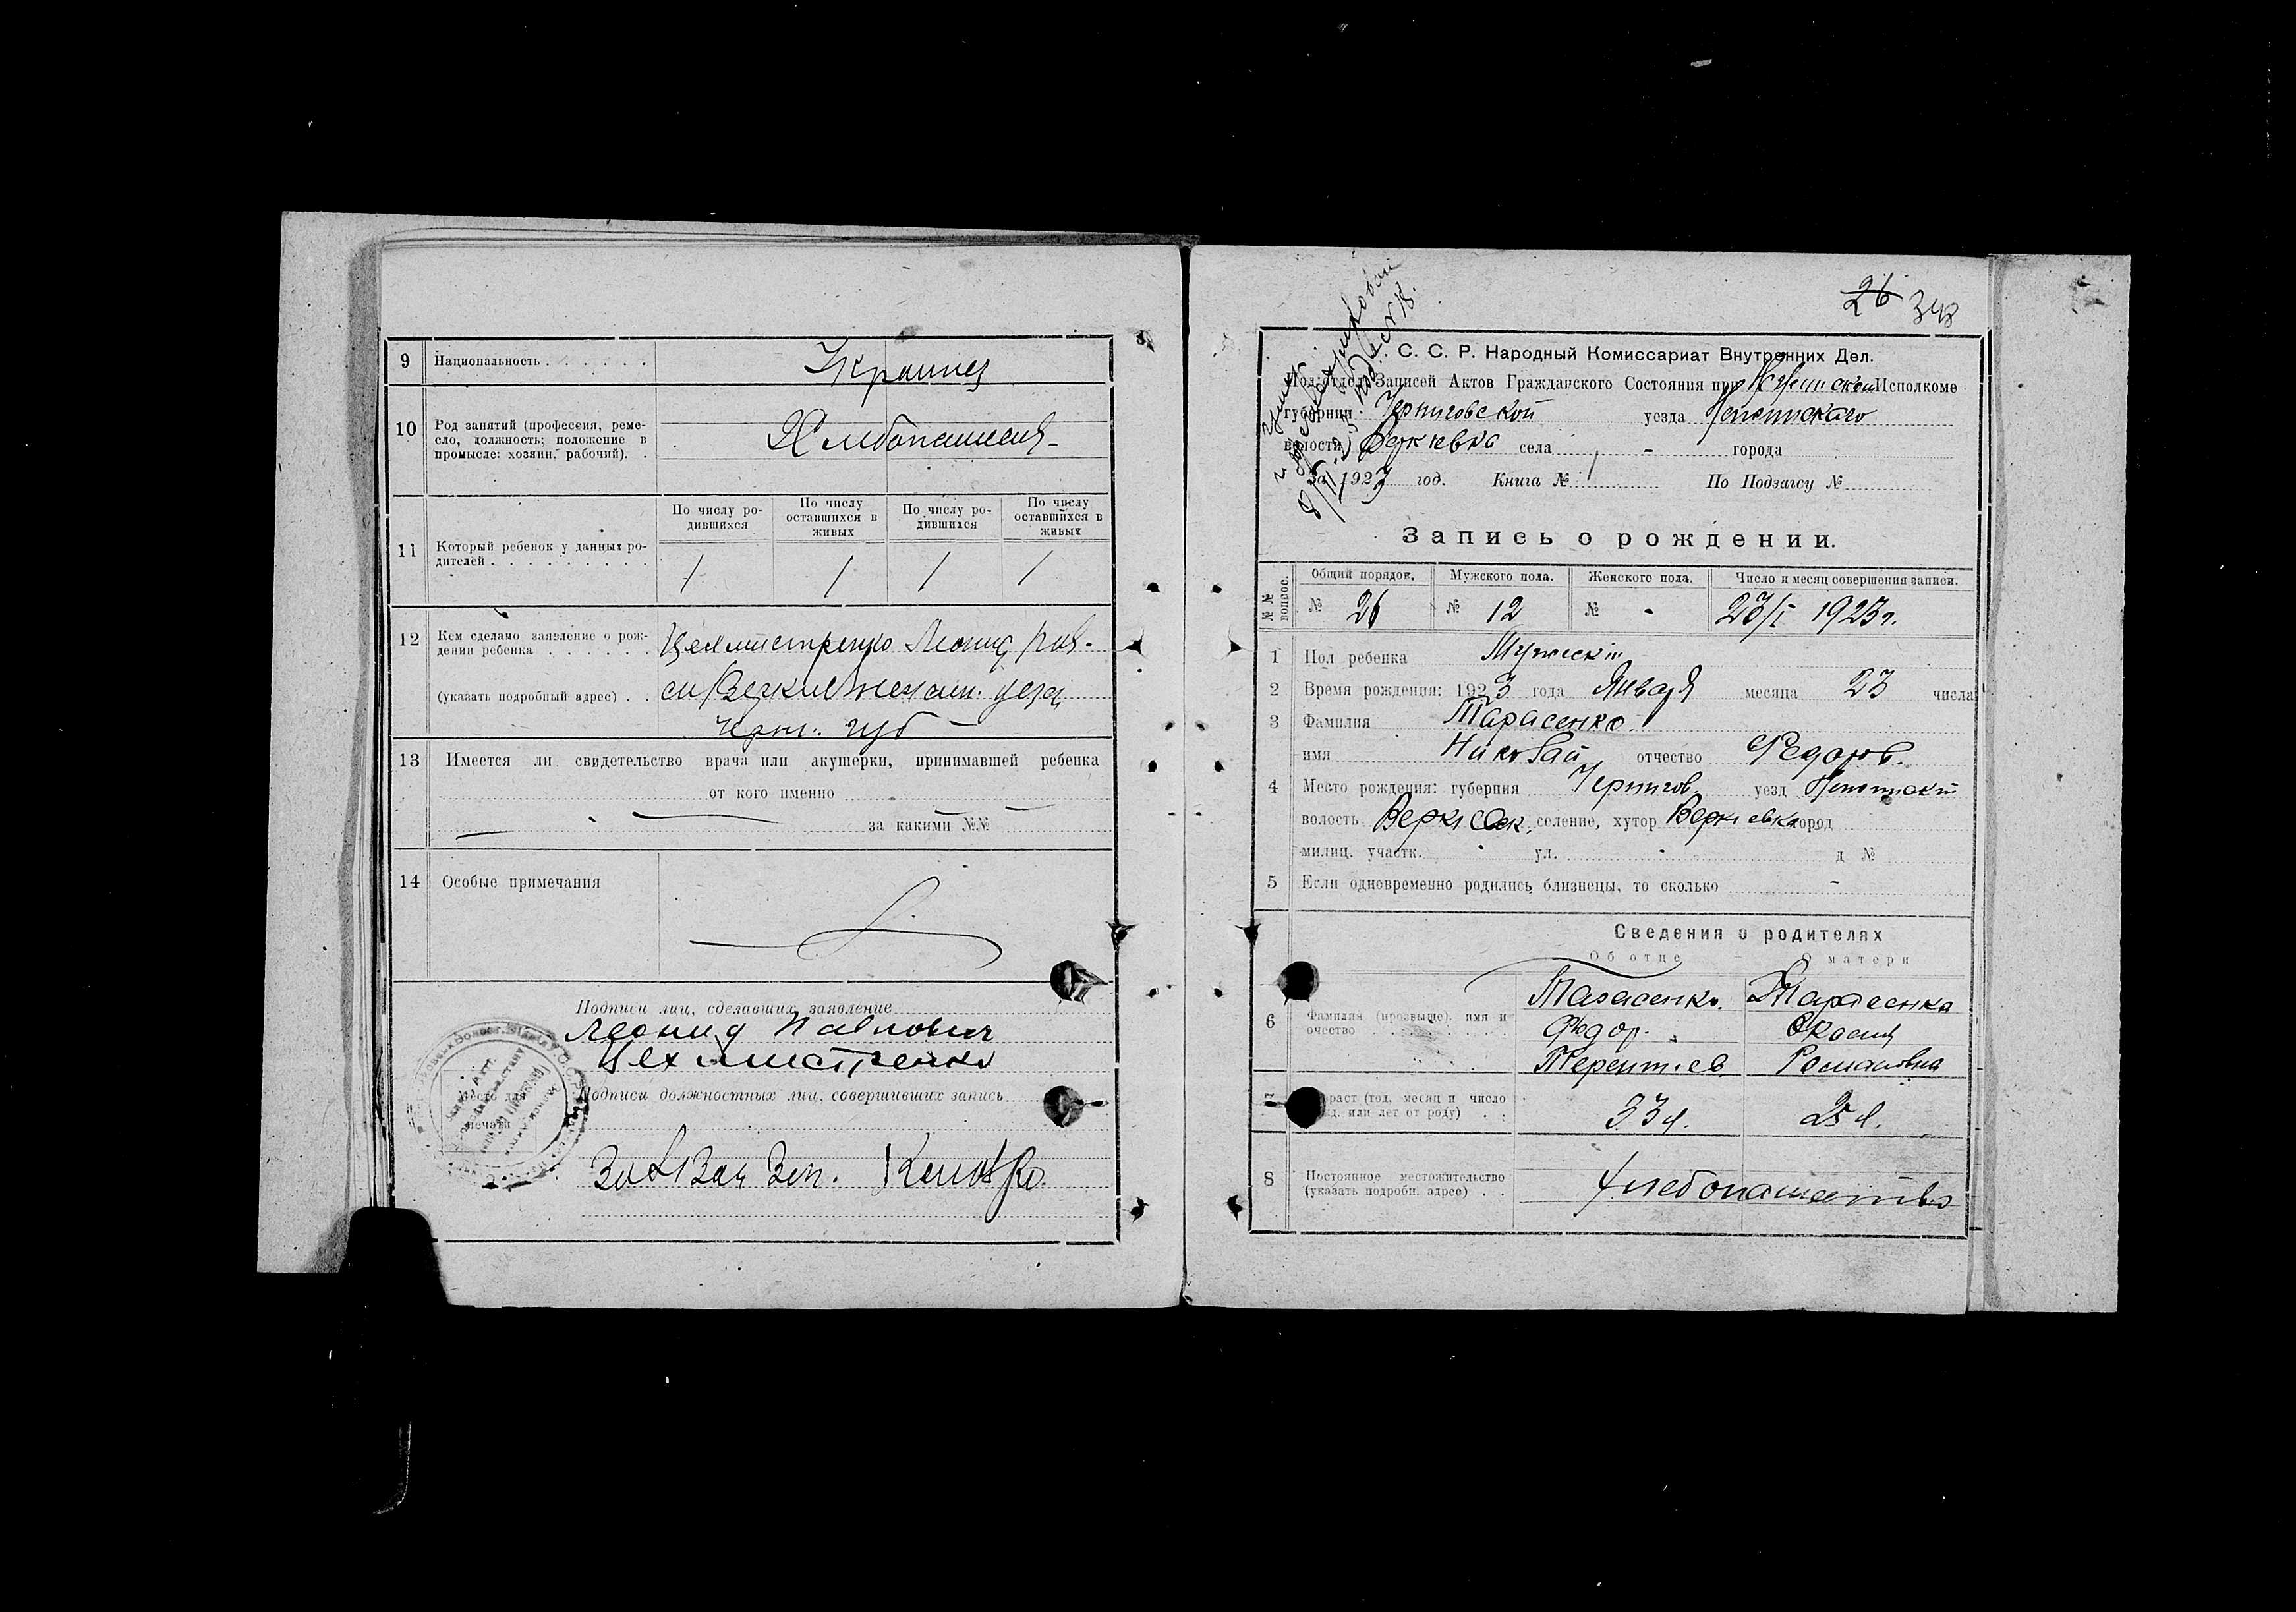 9 Национальность . . . . . . Украинец
10 Род занятий (профессия, реме-
сло, должность; положение в
промысле: хозяин, рабочий). .
Хлебопашеств
По числу ро-
дившихся
По числу
оставшихся в
живых
По числу ро-
дившихся
По числу
оставшихся в
живых
11 Который ребенок у данных ро-
дителей . . . . . . . . . 1 1 1 1
12 Кем сделано заявление о рож-
дении ребенка . . . . . . Цехмистренко Леонид Пав.
(указать подробный адрес) . .
Черн. губ
13 Имеется ли свидетельство врача или акушерки, принимавшей ребенка
от кого именно
за какими №№
14 Особые примечания
Подписи лиц, сделавших заявление
Леонид Павлович
Цехмистренко
Подписи должностных лиц, совершивших запись
Место для
печати
26 343
С. С. Р. Народный Комиссариат Внутренних Дел.
Под'отдел Записей Актов Гражданского Состояния при Нежинском Исполкоме
губернии Черниговской уезда Нежинскаго
волости Веркиевка села - города
За 1923 год. Книга № 1 По Подзагсу №
Запись о рождении.
№ № вопрос.
Общий порядок. Мужского пола. Женского пола. Число и месяц совершения записи.
№ 26 № 12 № - 23/I 1923 г.
1 Пол ребенка Мужской
2 Время рождения: 1923 года Января месяца 23 числа
3 Фамилия Тарасенко
имя Николай отчество Федоров.
4 Место рождения: губерния Чернигов. уезд Нежинский
волость Веркиевск. селение, хутор Веркиевка город
милиц. участк. ул. д №
5 Если одновременно родились близнецы, то сколько -
Сведения о родителях
Об отце О матери
6 Фамилия (прозвище), имя и
очество . . . . . .
Тарасенко. Тарасенко
Федор.
Терентиев Романовна
7 Возраст (год, месяц и число
рожд. или лет от роду) . . 33 л. 25 л.
8 Постоянное местожительство
(указать подробн. адрес) . . Хлебопашество